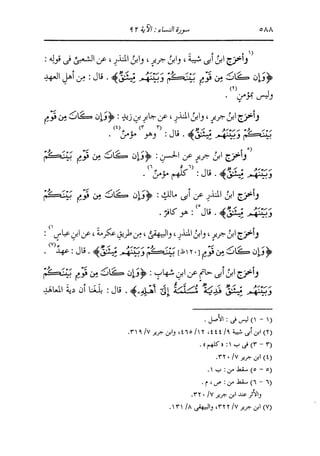 ٥٨٨ سورة النساء : الآية ٩٢
(١) وأخرج ابنُ أبى شيبة ، وابنُ جريرٍ ، وابنُ المنذرِ ، عن الشعبىِّ فى قوله :
﴿ وَإِن كَانَ مِن قَوْمٍ بَيْنَكُمْ وَبَيْنَهُم مِّيثَاقٌ ﴾ . قال : مِن أهلِ العهدِ
وليس بمؤمنٍ (٢) .
وأخرَج ابنُ جريرٍ ، وابنُ المنذرِ ، عن جابرِ بنِ زيدٍ : ﴿ وَإِن كَانَ مِن قَوْمٍ
بَيْنَكُمْ وَبَيْنَهُم مِّيثَاقٌ ﴾ . قال : (٣) وهو (٣) مؤمنٌ (٤) .
(٥) وأخرَج ابنُ جريرٍ عن الحسنِ : ﴿ وَإِن كَانَ مِن قَوْمٍ بَيْنَكُمْ
وَبَيْنَهُم مِّيثَاقٌ ﴾ . قال : (٦) كلُّهم مؤمنٌ (٦) .
وأخرَج ابنُ المنذرِ عن أبى مالكٍ : ﴿ وَإِن كَانَ مِن قَوْمٍ بَيْنَكُمْ
وَبَيْنَهُم مِّيثَاقٌ ﴾ . قال (٥) : هو كافرٌ .
وأخرَج ابنُ جريرٍ ، وابنُ المنذرِ ، والبيهقىُّ ، مِن طريقِ عكرمةَ ، عن ابنِ عباسٍ (١) :
﴿ وَإِن كَانَ مِن قَوْمٍ [١٢٠ظ] بَيْنَكُمْ وَبَيْنَهُم مِّيثَاقٌ ﴾ . قال : عهدٌ (٧) .
وأخرَج ابنُ أبى حاتمٍ عن ابنِ شهابٍ : ﴿ وَإِن كَانَ مِن قَوْمٍ بَيْنَكُمْ
وَبَيْنَهُم مِّيثَاقٌ فَدِيَةٌ مُّسَلَّمَةٌ إِلَىٰ أَهْلِهِ ﴾ . قال : بلَغنا أن ديةَ المعاهَدِ
(١ - ١) ليس فى : الأصل .
(٢) ابن أبى شيبة ٩/ ٤٤٤، ١٢/ ٤٦٥، وابن جرير ٧/ ٣١٩.
(٣ - ٣) فى ب ١: « كلهم ».
(٤) ابن جرير ٧/ ٣٢٠.
(٥ - ٥) سقط من : ب ١.
(٦ - ٦) سقط من : ص ، م .
والأثر عند ابن جرير ٧/ ٣٢٠.
(٧) ابن جرير ٧/ ٣٢٢، والبيهقى ٨/ ١٣١.